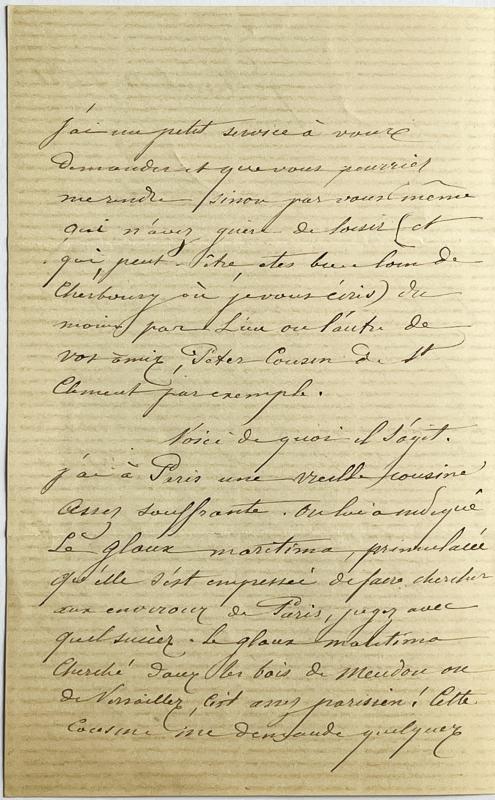 J'ai un petit service à vous
demander et que vous pourriez
me rendre sinon par vous même
qui n'avez guère de loisir (et
qui, peut-être, êtes bien loin de
Cherbourg où je vous écris) du
moins par l'un ou l'autre de
vos amis, Péter Cousin de St
Clément par exemple.
Voici de quoi il s'agit.
J'ai à Paris une vieille cousine
assez souffrante. On lui a indiqué
Le glaux maritima, primulacée
qu'elle s'est empressée de faire chercher
aux environs de Paris, jugez avec
quel succès. Le glaux maritima
cherché dans les bois de Meudon ou
de Versailles, c'est assez parisien! Cette
cousine me demande quelques